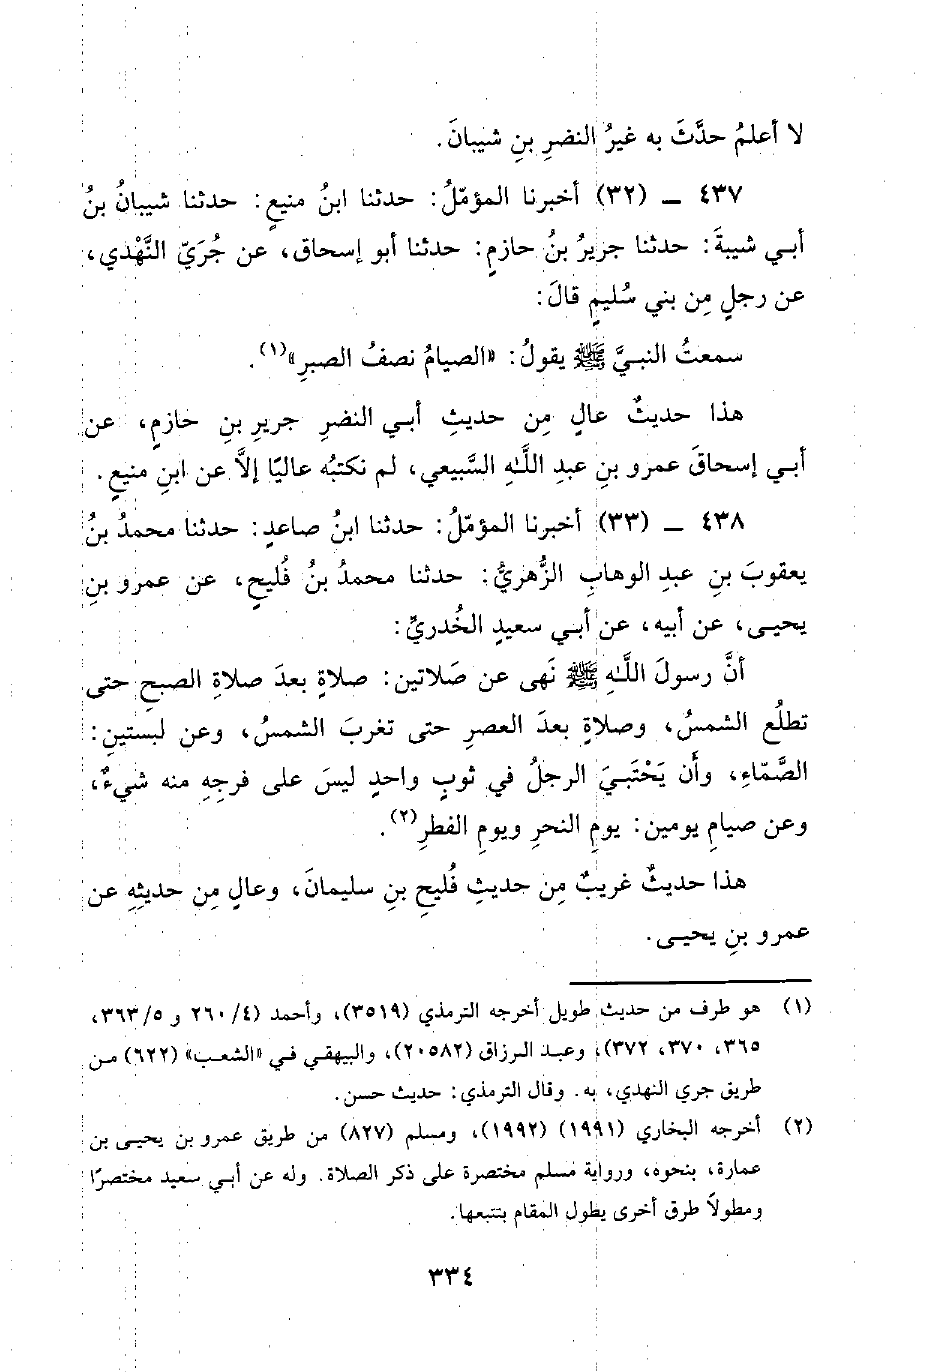 لا أعلمُ حدَّثَ به غيرُ النضرِ بنِ شيبانَ.
٤٣٧ ـ (٣٢) أخبرنا المؤمّلُ: حدثنا ابنُ منيعٍ: حدثنا شيبانُ بنُ
أبـي شيبةَ: حدثنا جريرُ بنُ حازمٍ: حدثنا أبو إسحاق، عن جُرَيّ النَّهْدي،
عن رجلٍ مِن بني سُليمٍ قالَ:
سمعتُ النبـيَّ ﷺ يقولُ: «الصيامُ نصفُ الصبرِ»(١).
هذا حديثٌ عالٍ مِن حديثِ أبـي النضرِ جريرِ بنِ حازمٍ، عن
أبـي إسحاقَ عمرو بنِ عبدِ اللَّـهِ السَّبيعي، لم نكتبُه عاليًا إلاَّ عن ابنِ منيعٍ.
٤٣٨ ـ (٣٣) أخبرنا المؤمّلُ: حدثنا ابنُ صاعدٍ: حدثنا محمدُ بنُ
يعقوبَ بنِ عبدِ الوهابِ الزُّهريُّ: حدثنا محمدُ بنُ فُليحٍ، عن عمرو بنِ
يحيـى، عن أبيه، عن أبـي سعيدٍ الخُدريِّ:
أنَّ رسولَ اللَّـهِ ﷺ نَهى عن صَلاتين: صلاةٍ بعدَ صلاةِ الصبحِ حتى
تطلُع الشمسُ، وصلاةٍ بعدَ العصرِ حتى تغربَ الشمسُ، وعن لبستينِ:
الصَّمّاءِ، وأَن يَحْتَبـيَ الرجلُ في ثوبٍ واحدٍ ليسَ على فرجِهِ منه شيءٌ،
وعن صيامِ يومين: يومِ النحرِ ويومِ الفطرِ(٢).
هذا حديثٌ غريبٌ مِن حديثِ فُليحِ بنِ سليمانَ، وعالٍ مِن حديثِهِ عن
عمرو بنِ يحيـى.
(١) هو طرف من حديث طويل أخرجه الترمذي (٣٥١٩)، وأحمد (٤/ ٢٦٠ و ٥/ ٣٦٣،
٣٦٥، ٣٧٠، ٣٧٢)، وعبد الرزاق (٢٠٥٨٢)، والبيهقي في «الشعب» (٦٢٢) من
طريق جري النهدي، به. وقال الترمذي: حديث حسن.
(٢) أخرجه البخاري (١٩٩١) (١٩٩٢)، ومسلم (٨٢٧) من طريق عمرو بن يحيـى بن
عمارة، بنحوه، ورواية مسلم مختصرة على ذكر الصلاة. وله عن أبـي سعيد مختصرًا
ومطولاً طرق أخرى يطول المقام بتتبعها.
٣٣٤